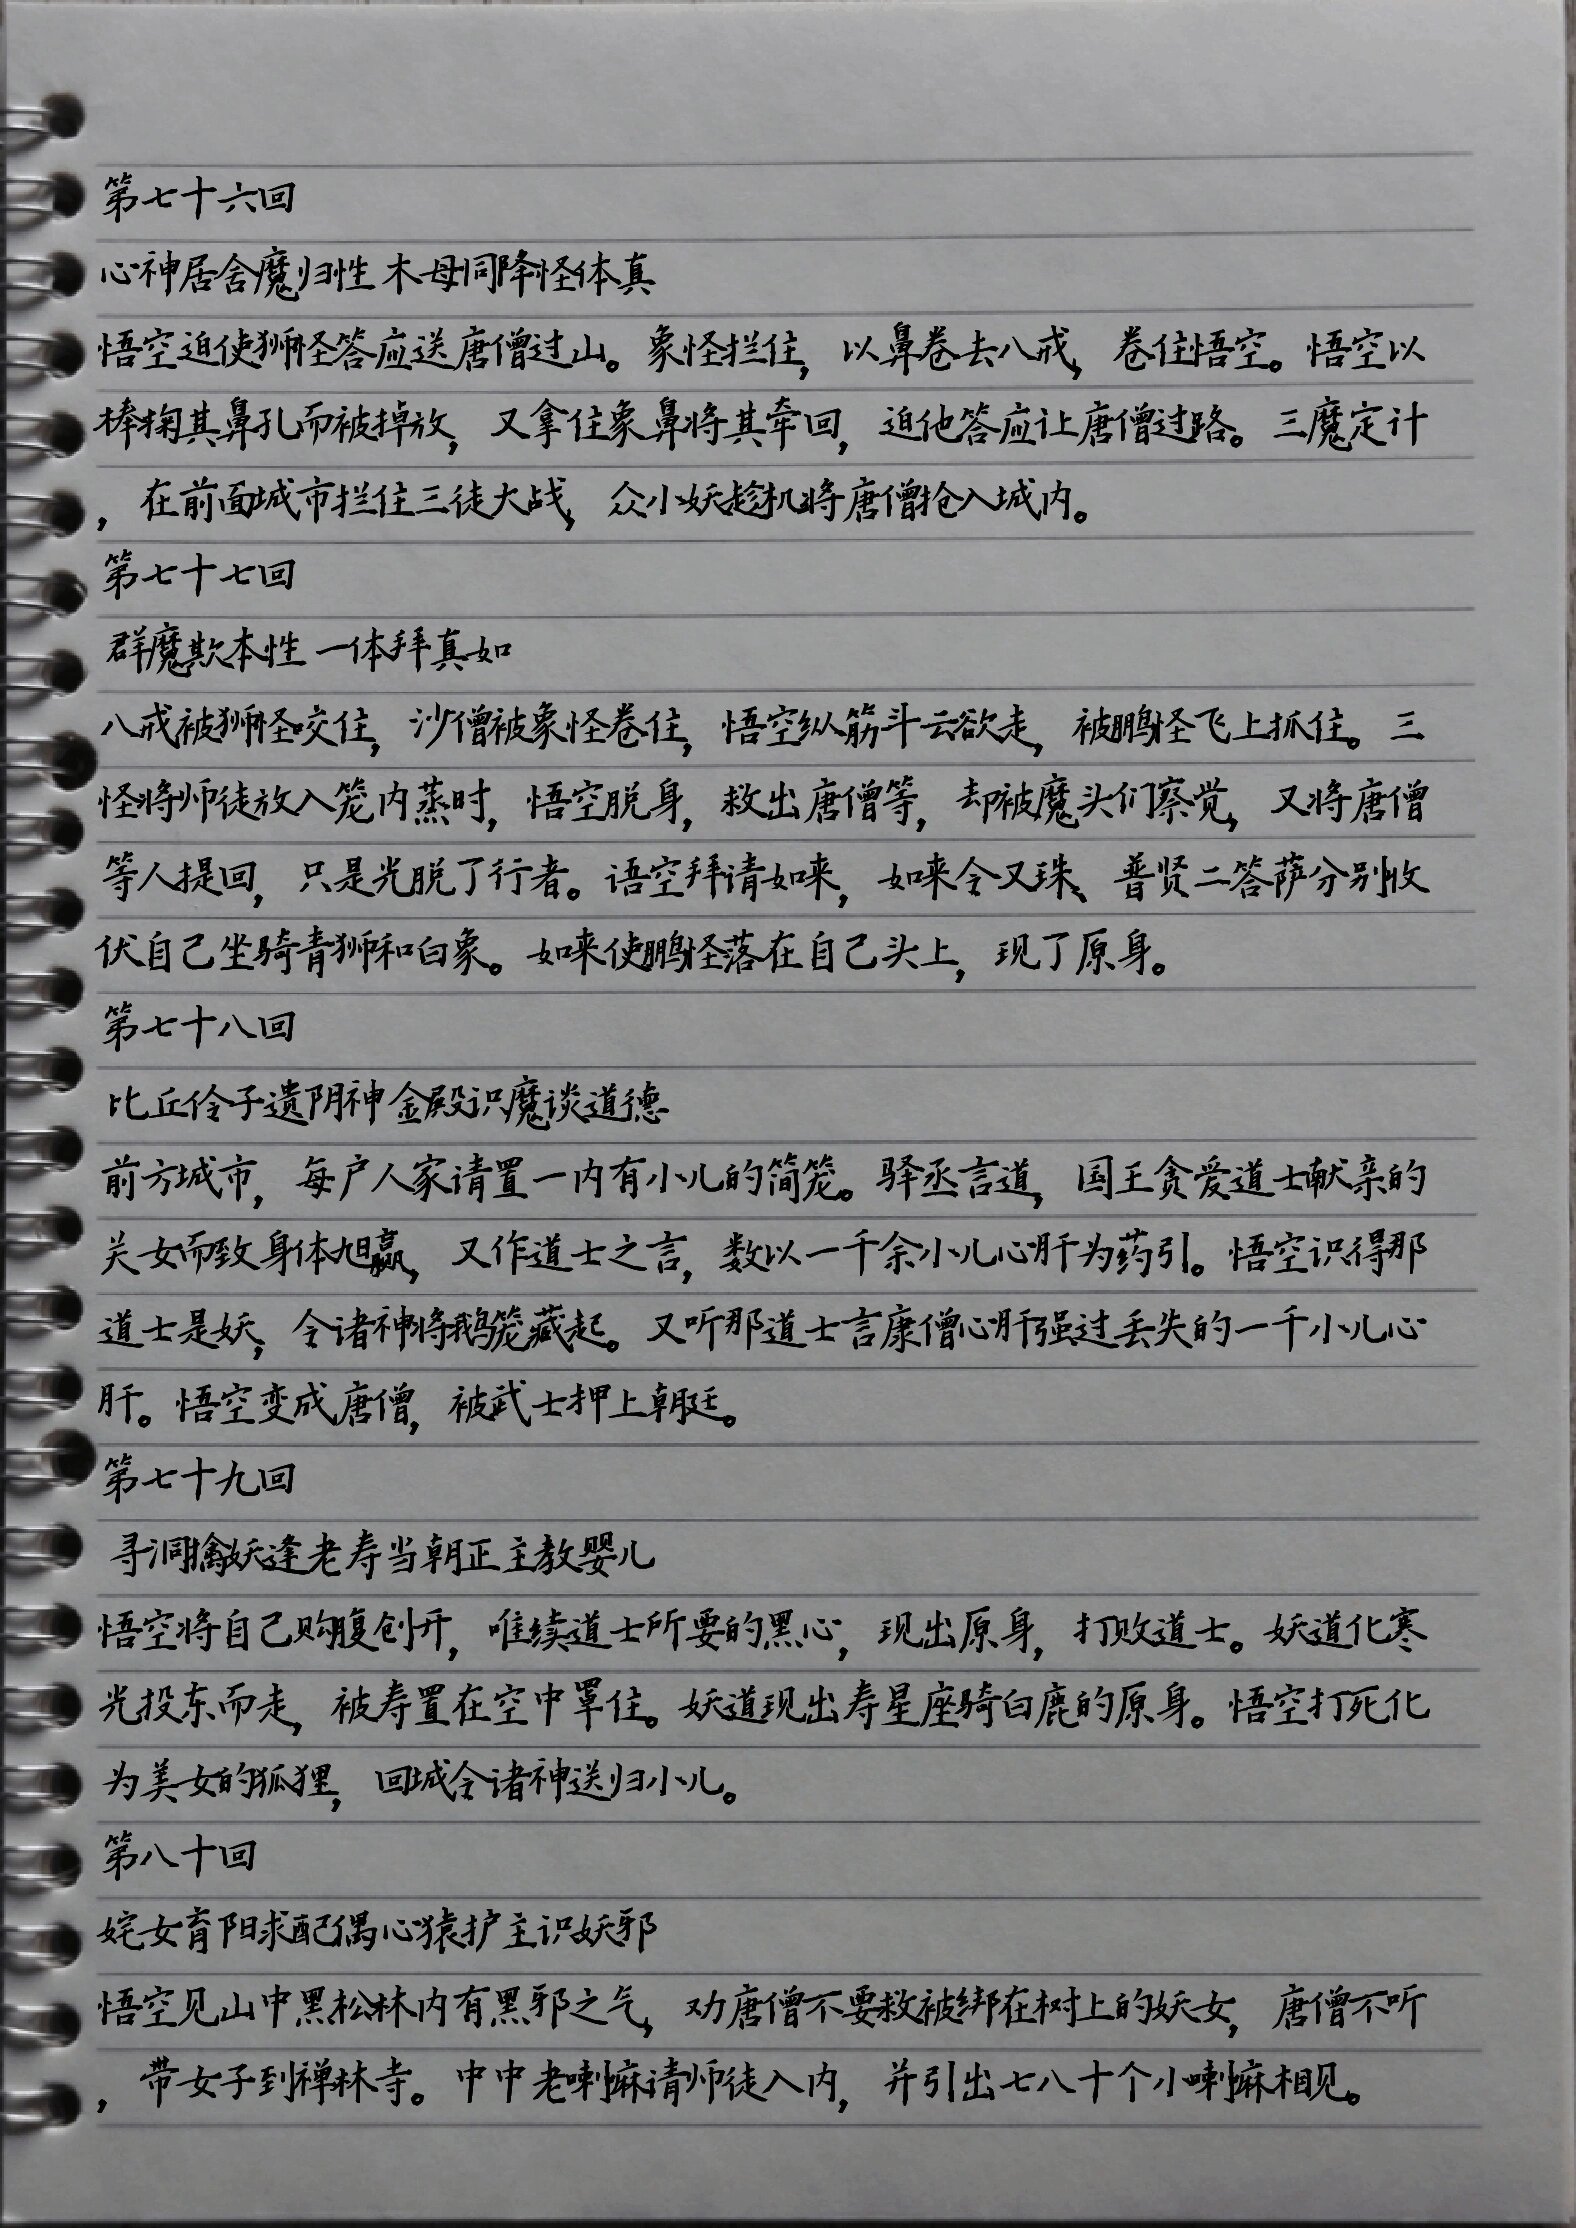 第七十六回
心神居舍魔归性 木母同降怪体真
悟空迫使狮怪答应送唐僧过山。象怪拦住，以鼻卷去八戒，卷住悟空。悟空以
棒掬其鼻孔而被掉放，又拿住象鼻将其牵回，迫他答应让唐僧过路。三魔定计
，在前面城市拦住三徒大战，众小妖趁机将唐僧抢入城内。
第七十七回
群魔欺本性 一体拜真如
八戒被狮怪咬住，沙僧被象怪卷住，悟空纵筋斗云欲走，被鹏怪飞上抓住。三
怪将师徒放入笼内蒸时，悟空脱身，救出唐僧等，却被魔头们察觉，又将唐僧
等人提回，只是光脱了行者。语空拜请如来，如来令又珠、普贤二答萨分别收
伏自己坐骑青狮和白象。如来使鹏怪落在自己头上，现了原身。
第七十八回
比丘伶子遗阴神 金殿识魔谈道德
前方城市，每户人家请置一内有小儿的简笼。驿丞言道，国王贪爱道士献亲的
关女而致身体旭赢，又作道士之言，数以一千余小儿心肝为药引。悟空识得那
道士是妖，令诸神将鹅笼藏起。又听那道士言康僧心肝强过丢失的一千小儿心
肝。悟空变成唐僧，被武士押上朝廷。
第七十九回
寻洞擒妖逢老寿 当朝正主教婴儿
悟空将自己购腹创开，唯续道士所要的黑心，现出原身，打败道士。妖道化寒
光投东而走，被寿置在空中罩住。妖道现出寿星座骑白鹿的原身。悟空打死化
为美女的狐狸，回城令诸神送归小儿。
第八十回
姹女育阳求配偶 心猿护主识妖邪
悟空见山中黑松林内有黑邪之气，劝唐僧不要救被绑在树上的妖女，唐僧不听
，带女子到禅林寺。中中老喇嘛请师徒入内，并引出七八十个小喇嘛相见。